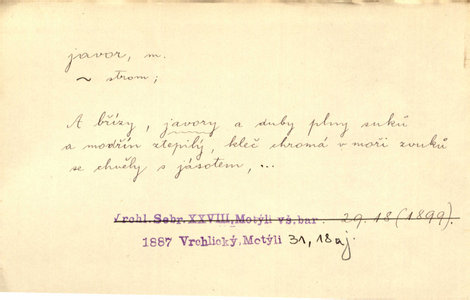 javor, m.
~ strom;
A břízy, javory a duby plny suků
a modřín ztepilý, kleč chromá v moři zvuků
se chvěly s jásotem, ...
Vrchl. Sebr. XXVIII, Motýli vš. bar. 29.18 (1899).
1887 Vrchlický, Motýli 31, 18 aj.